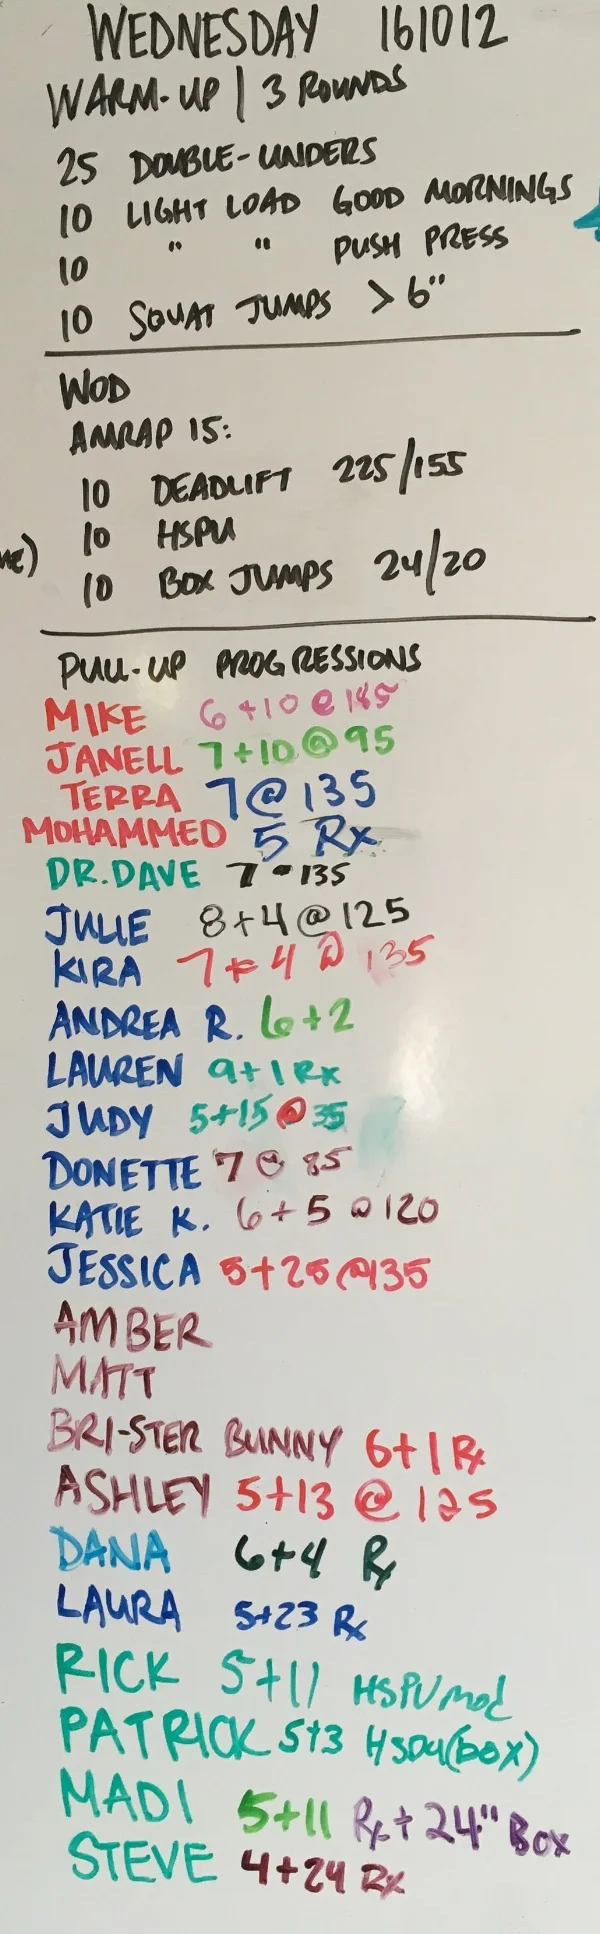 WEDNESDAY 161012
WARM-UP | 3 ROUNDS
25 DOUBLE-UNDERS
10 LIGHT LOAD GOOD MORNINGS
10 " " PUSH PRESS
10 SQUAT JUMPS > 6"
WOD
AMRAP 15:
10 DEADLIFT 225/155
10 HSPU
10 BOX JUMPS 24/20
PULL-UP PROGRESSIONS
MIKE 6+10 @ 185
JANELL 7+10@95
TERRA 7@135
MOHAMMED 5 Rx
DR.DAVE 7-135
JULIE 8+4@125
KIRA 7+4@135
ANDREA R. 6+2
LAUREN 9+1 Rx
JUDY 5+15@35
DONETTE 7@85
KATIE K. 6+5@120
JESSICA 5+25@135
AMBER
MATT
BRI-STER BUNNY 6+1 Rx
ASHLEY 5+13 @ 125
DANA 6+4 Rx
LAURA 5+23 Rx
RICK 5+11 HSPU mod
PATRICK 5+3 HSPU(box)
MADI 5+11 Rx+24" BOX
STEVE 4+24 Rx